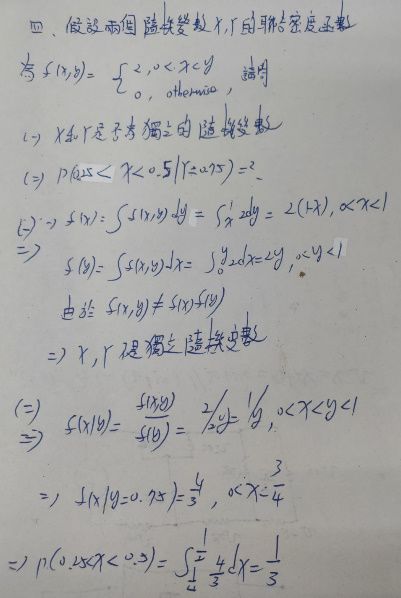 四、假設兩個隨機變數X,Y的聯合密度函數
為 f(x,y)= { 2, 0<x<y
0, otherwise, 請問
(一) X和Y是否為獨立的隨機變數
(二) P(0.25<X<0.5|Y=0.75)=?
(一)⇒ f(x)=∫f(x,y)dy=∫_x^1 2dy=2(1-x), 0<x<1
f(y)=∫f(x,y)dx=∫_0^y 2dx=2y, 0<y<1
由於 f(x,y)≠f(x)f(y)
⇒ X,Y 獨立隨機變數
(二)⇒ f(x|y)=f(x,y)/f(y)=2/2y=1/y, 0<x<y<1
⇒ f(x|y=0.75)=4/3, 0<x<3/4
⇒ P(0.25<x<0.5)=∫_{1/4}^{1/2} 4/3 dx=1/3